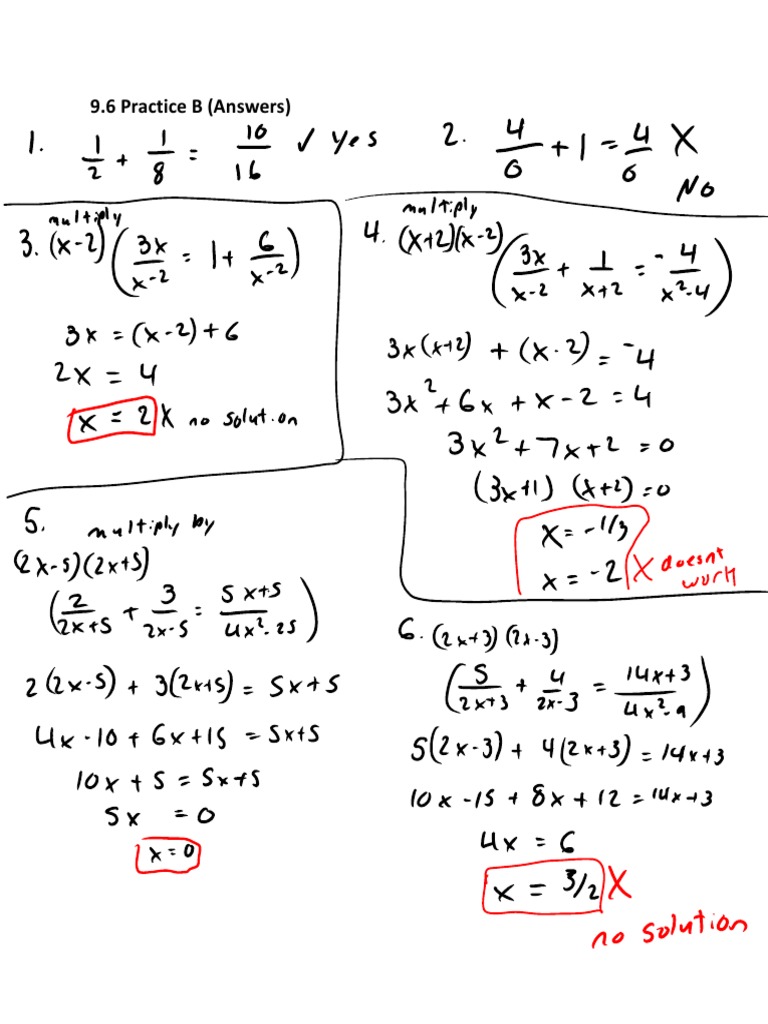 9.6 Practice B (Answers)
1. 1/2 + 1/8 = 10/16 ✓ yes
2. 4/0 + 1 = 4/0 X
NO
multiply
3. (x-2) (3x/x-2 = 1 + 6/x-2)
3x = (x-2) + 6
2x = 4
x = 2 X no solution
multiply
4. (x+2)(x-2) (3x/x-2 + 1/x+2 = -4/x²-4)
3x(x+2) + (x-2) = -4
3x² + 6x + x - 2 = 4
3x² + 7x + 2 = 0
(3x+1) (x+2) = 0
x = -1/3
x = -2 X doesnt work
5. multiply by
(2x-5)(2x+5)
(2/2x+5 + 3/2x-5 = 5x+5/4x²-25)
2(2x-5) + 3(2x+5) = 5x+5
4x - 10 + 6x + 15 = 5x+5
10x + 5 = 5x+5
5x = 0
x = 0
6. (2x+3)(2x-3)
(5/2x+3 + 4/2x-3 = 14x+3/4x²-9)
5(2x-3) + 4(2x+3) = 14x+3
10x - 15 + 8x + 12 = 14x+3
4x = 6
x = 3/2 X
no solution